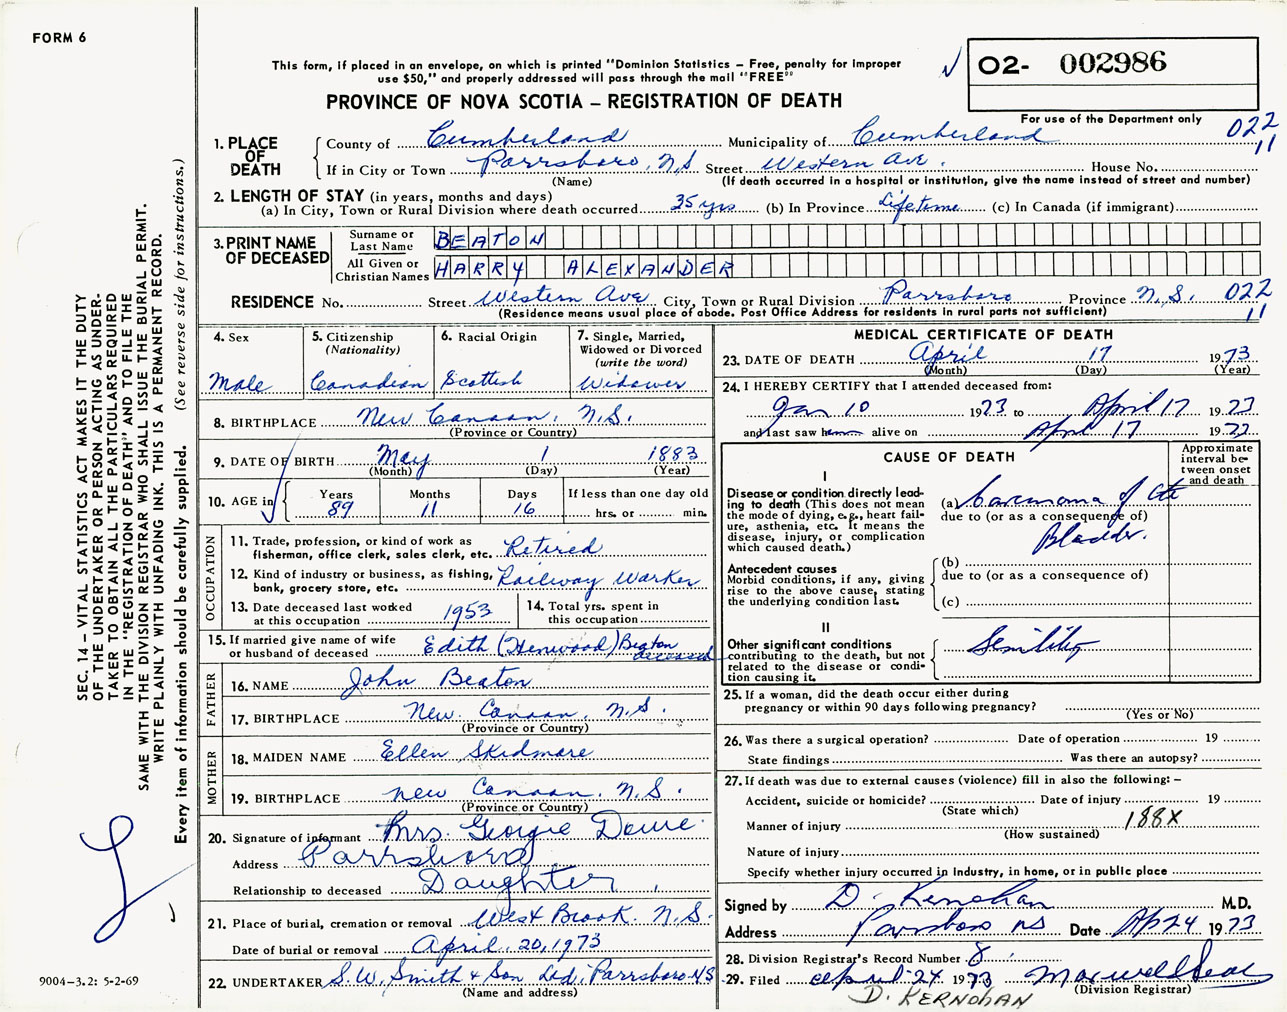 FORM 6
This form, if placed in an envelope, on which is printed "Dominion Statistics – Free, penalty for improper
use $50," and properly addressed will pass through the mail "FREE"
O2- 002986
PROVINCE OF NOVA SCOTIA – REGISTRATION OF DEATH
For use of the Department only
022
11
1. PLACE OF DEATH
County of Cumberland Municipality of Cumberland
If in City or Town Parrsboro, N.S Street Western Ave. House No.
(Name) (If death occurred in a hospital or institution, give the name instead of street and number)
2. LENGTH OF STAY (in years, months and days)
(a) In City, Town or Rural Division where death occurred 35 yrs (b) In Province Lifetime (c) In Canada (if immigrant)
3. PRINT NAME OF DECEASED
Surname or Last Name BEATON
All Given or Christian Names HARRY ALEXANDER
RESIDENCE No. Street Western Ave City, Town or Rural Division Parrsboro Province N.S. 022
(Residence means usual place of abode. Post Office Address for residents in rural parts not sufficient) 11
4. Sex
Male
5. Citizenship
(Nationality)
Canadian
6. Racial Origin
Scottish
7. Single, Married,
Widowed or Divorced
(write the word)
Widower
8. BIRTHPLACE New Canaan, N.S.
(Province or Country)
9. DATE OF BIRTH May 1 1883
(Month) (Day) (Year)
10. AGE in
Years 89
Months 11
Days 16
If less than one day old
hrs. or min.
OCCUPATION
11. Trade, profession, or kind of work as
fisherman, office clerk, sales clerk, etc. Retired
12. Kind of industry or business, as fishing,
bank, grocery store, etc. Railway Worker
13. Date deceased last worked
at this occupation 1953
14. Total yrs. spent in
this occupation
15. If married give name of wife
or husband of deceased Edith (Henwood) Beaton
deceased
FATHER
16. NAME John Beaton
17. BIRTHPLACE New Canaan, N.S.
(Province or Country)
MOTHER
18. MAIDEN NAME Ellen Skidmore
19. BIRTHPLACE New Canaan, N.S.
(Province or Country)
20. Signature of informant Mrs. Georgie Dowe
Address Parrsboro
Relationship to deceased Daughter
21. Place of burial, cremation or removal West Brook N.S.
Date of burial or removal April 20, 1973
22. UNDERTAKER S.W. Smith & Son Ltd, Parrsboro NS
(Name and address)
MEDICAL CERTIFICATE OF DEATH
23. DATE OF DEATH April 17 1973
(Month) (Day) (Year)
24. I HEREBY CERTIFY that I attended deceased from:
Jan 10 1973 to April 17 1973
and last saw him alive on April 17 1973
CAUSE OF DEATH
Approximate
interval be-
tween onset
and death
I
Disease or condition directly lead-
ing to death (This does not mean
the mode of dying, e.g., heart fail-
ure, asthenia, etc. It means the
disease, injury, or complication
which caused death.)
(a) Carcinoma of the
due to (or as a consequence of)
Bladder.
Antecedent causes
Morbid conditions, if any, giving
rise to the above cause, stating
the underlying condition last.
(b)
due to (or as a consequence of)
(c)
II
Other significant conditions
contributing to the death, but not
related to the disease or condi-
tion causing it.
Senility
25. If a woman, did the death occur either during
pregnancy or within 90 days following pregnancy?
(Yes or No)
26. Was there a surgical operation? Date of operation 19
State findings Was there an autopsy?
27. If death was due to external causes (violence) fill in also the following: –
Accident, suicide or homicide? Date of injury 19
(State which)
Manner of injury 188X
(How sustained)
Nature of injury
Specify whether injury occurred in industry, in home, or in public place
Signed by D. Kernohan M.D.
Address Parrsboro NS Date Ap 24 1973
28. Division Registrar's Record Number 8
29. Filed April 24 1973
(Division Registrar)
D. KERNOHAN
SEC. 14 – VITAL STATISTICS ACT MAKES IT THE DUTY
OF THE UNDERTAKER OR PERSON ACTING AS UNDER-
TAKER TO OBTAIN ALL THE PARTICULARS REQUIRED
IN THE "REGISTRATION OF DEATH" AND TO FILE THE
SAME WITH THE DIVISION REGISTRAR WHO SHALL ISSUE THE BURIAL PERMIT.
WRITE PLAINLY WITH UNFADING INK. THIS IS A PERMANENT RECORD.
Every item of information should be carefully supplied. (See reverse side for instructions.)
9004–3.2: 5-2-69